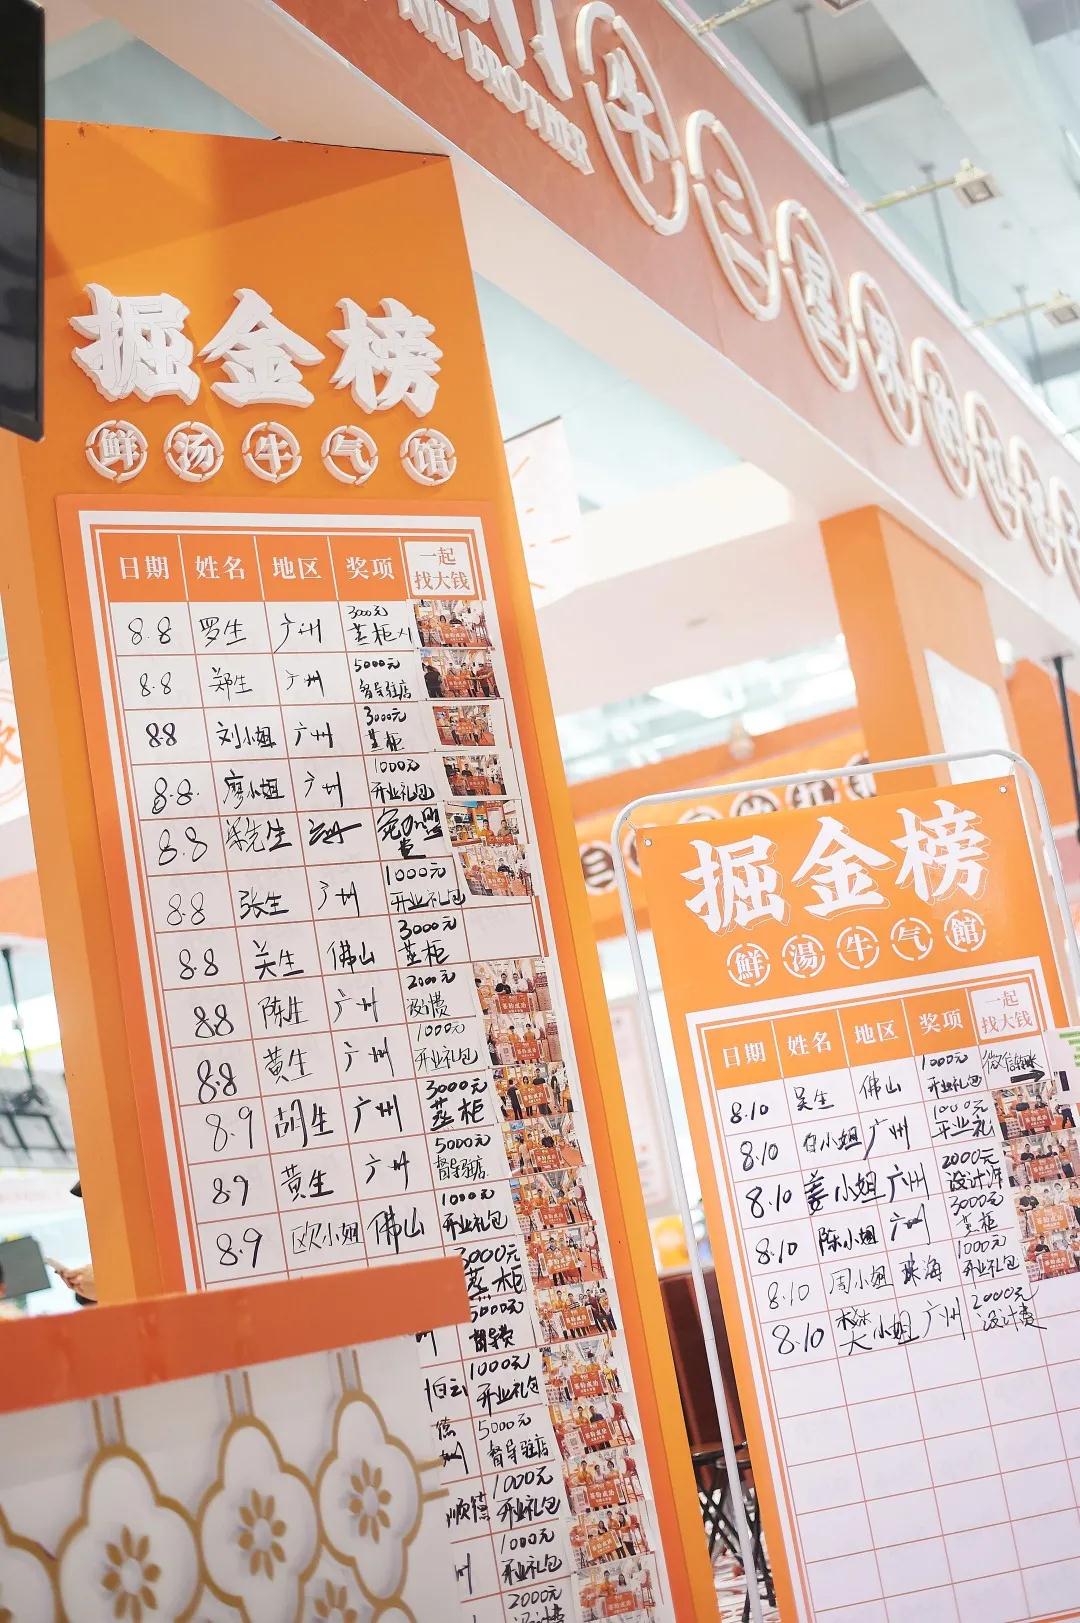 NIU BROTHER
牛三星界的扛
掘金榜
鮮汤牛气馆
日期 姓名 地区 奖项 一起找大钱
8.8 罗生 广州 3000元 蒸柜
8.8 郑生 广州 5000元 督导驻店
8.8 刘小姐 广州 3000元 蒸柜
8.8 廖小姐 广州 1000元 开业礼包
8.8 梁先生 免加盟费
8.8 张生 广州 1000元 开业礼包
8.8 关生 佛山 3000元 蒸柜
8.8 陈生 广州 2000元 设计费
8.8 黄生 广州 1000元 开业礼包
8.9 胡生 广州 3000元 蒸柜
8.9 黄生 广州 5000元 督导驻店
8.9 欧小姐 佛山 1000元 开业礼包
3000元 蒸柜
5000元 督导费
白云 1000元 开业礼包
5000元 督导驻店
顺德 1000元 开业礼包
州 1000元 开业礼包
2000元
掘金榜
鮮湯牛气館
日期 姓名 地区 奖项 一起找大钱
8.10 吴生 佛山 1000元 开业礼包 微信转账
8.10 白小姐 广州 1000元 开业礼
8.10 姜小姐 广州 2000元 设计
8.10 陈小姐 广州 3000元 蒸柜
8.10 周小姐 珠海 1000元 开业礼包
8.10 小姐 广州 2000元 设计费